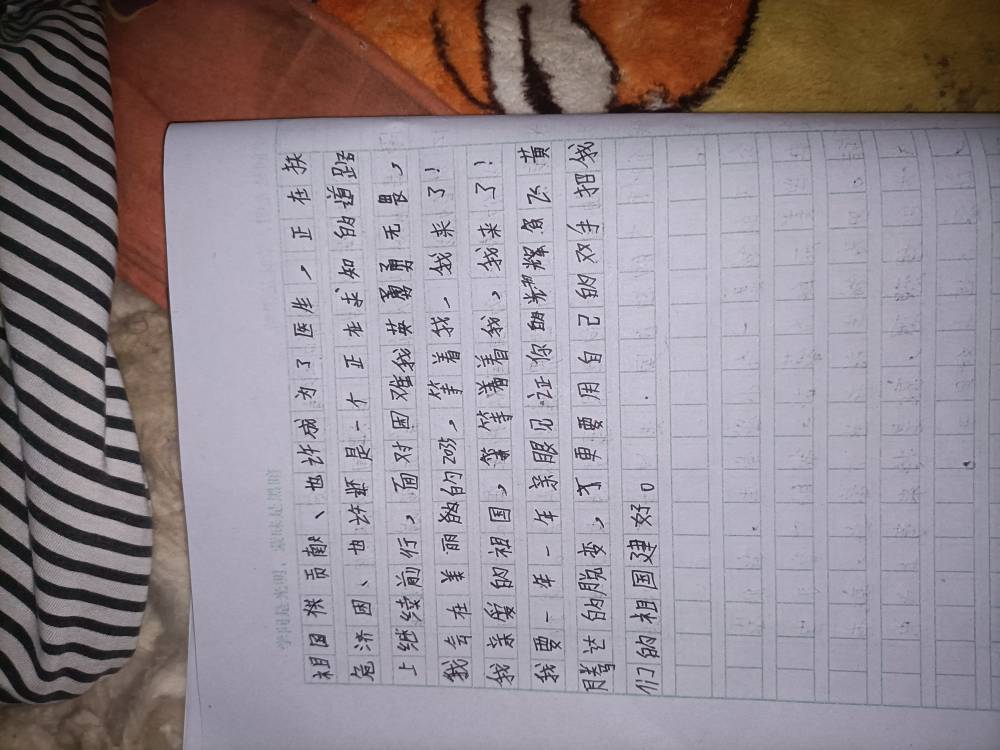 学问是光明，蒙昧是黑暗
祖国做贡献、也许成为了医生，正在扶
危济困、也许是一个正在求知的道路
上继续前行，面对困难我英勇无畏，
我会在美丽的2035，等着我、我来了！
我亲爱的祖国，等着我，我来了！
我要一年一年亲眼见证你的光辉
腾达的脱变，才更要用自己的双手把我
们的祖国建好。